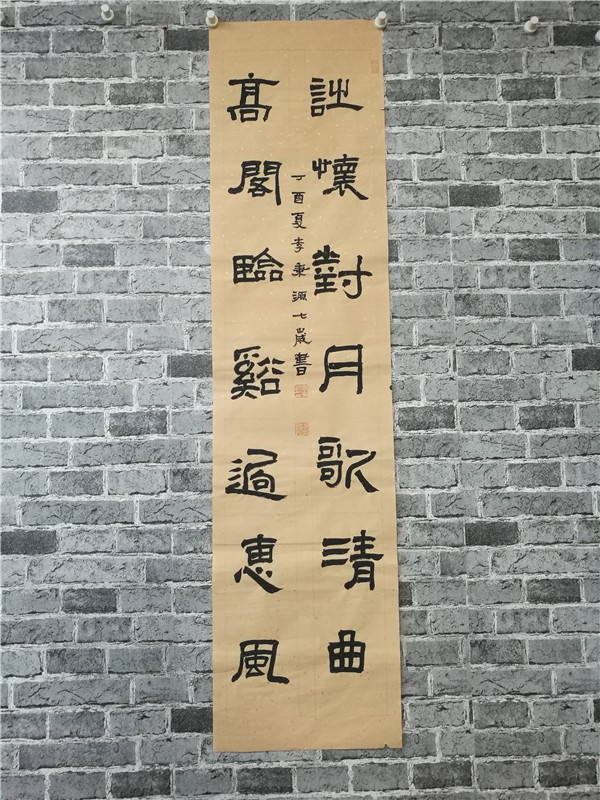 詩懷對月歌清曲
高閣臨谿過惠風
丁酉夏李秉源七歲書